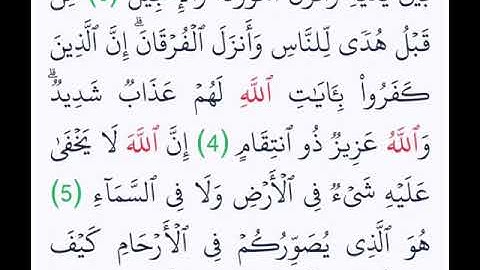 قَبْلُ هُدًى لِّلنَّاسِ وَأَنزَلَ ٱلْفُرْقَانَۗ إِنَّ ٱلَّذِينَ
كَفَرُوا۟ بِـَٔايَـٰتِ ٱللَّهِ لَهُمْ عَذَابٌ شَدِيدٌۗ
وَٱللَّهُ عَزِيزٌ ذُو ٱنتِقَامٍ (4) إِنَّ ٱللَّهَ لَا يَخْفَىٰ
عَلَيْهِ شَىْءٌ فِى ٱلْأَرْضِ وَلَا فِى ٱلسَّمَآءِ (5)
هُوَ ٱلَّذِى يُصَوِّرُكُمْ فِى ٱلْأَرْحَامِ كَيْفَ